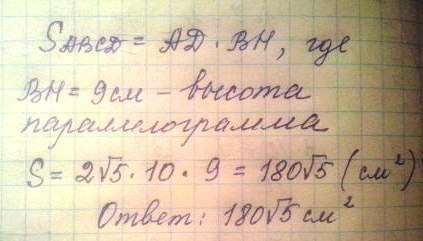 SABCD = AD · BH, где
BH = 9 см – высота
параллелограмма
S = 2√5 · 10 · 9 = 180√5 (см²)
Ответ: 180√5 см²